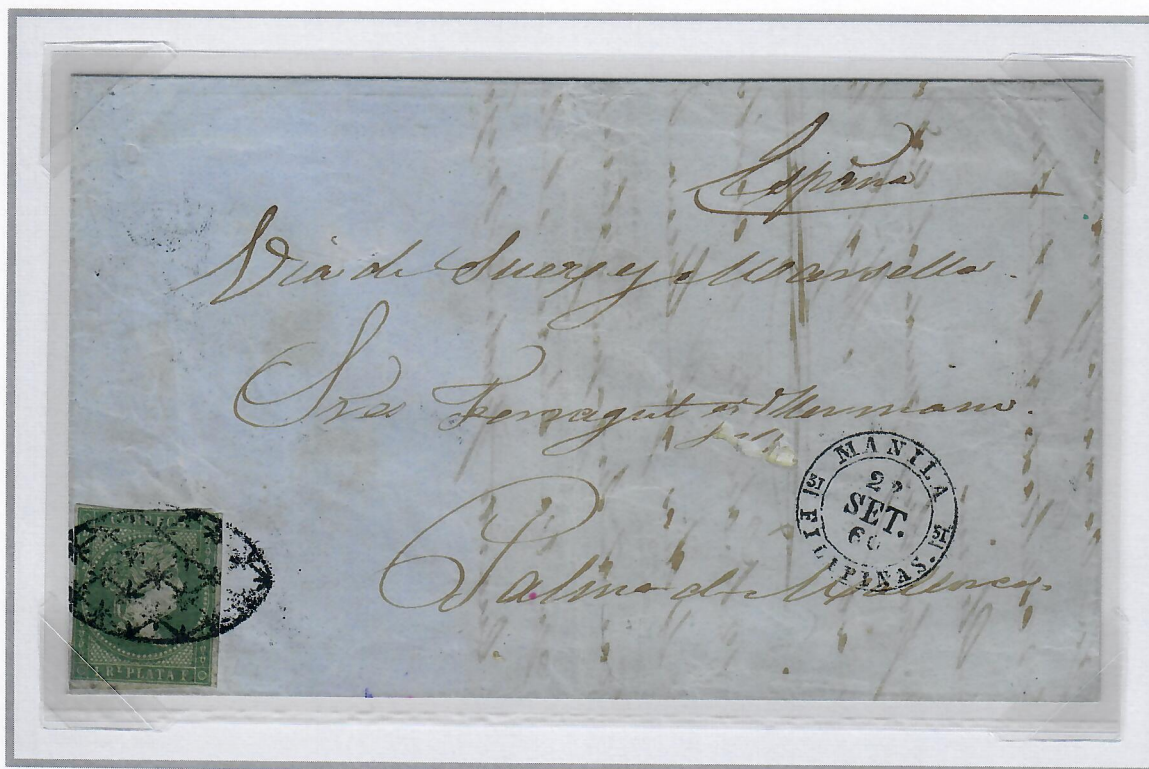 España
Via de Suez y Marsella
Sres Ferragut y Hermano.
Palma de Mallorca.
MANILA
SET.
FILIPINAS.
1 Rl. PLATA F.